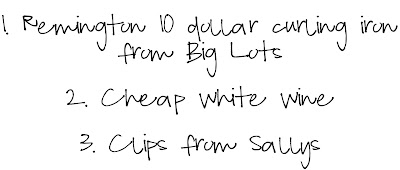 1. Remington 10 dollar curling iron
from Big Lots
2. Cheap white wine
3. Clips from Sallys